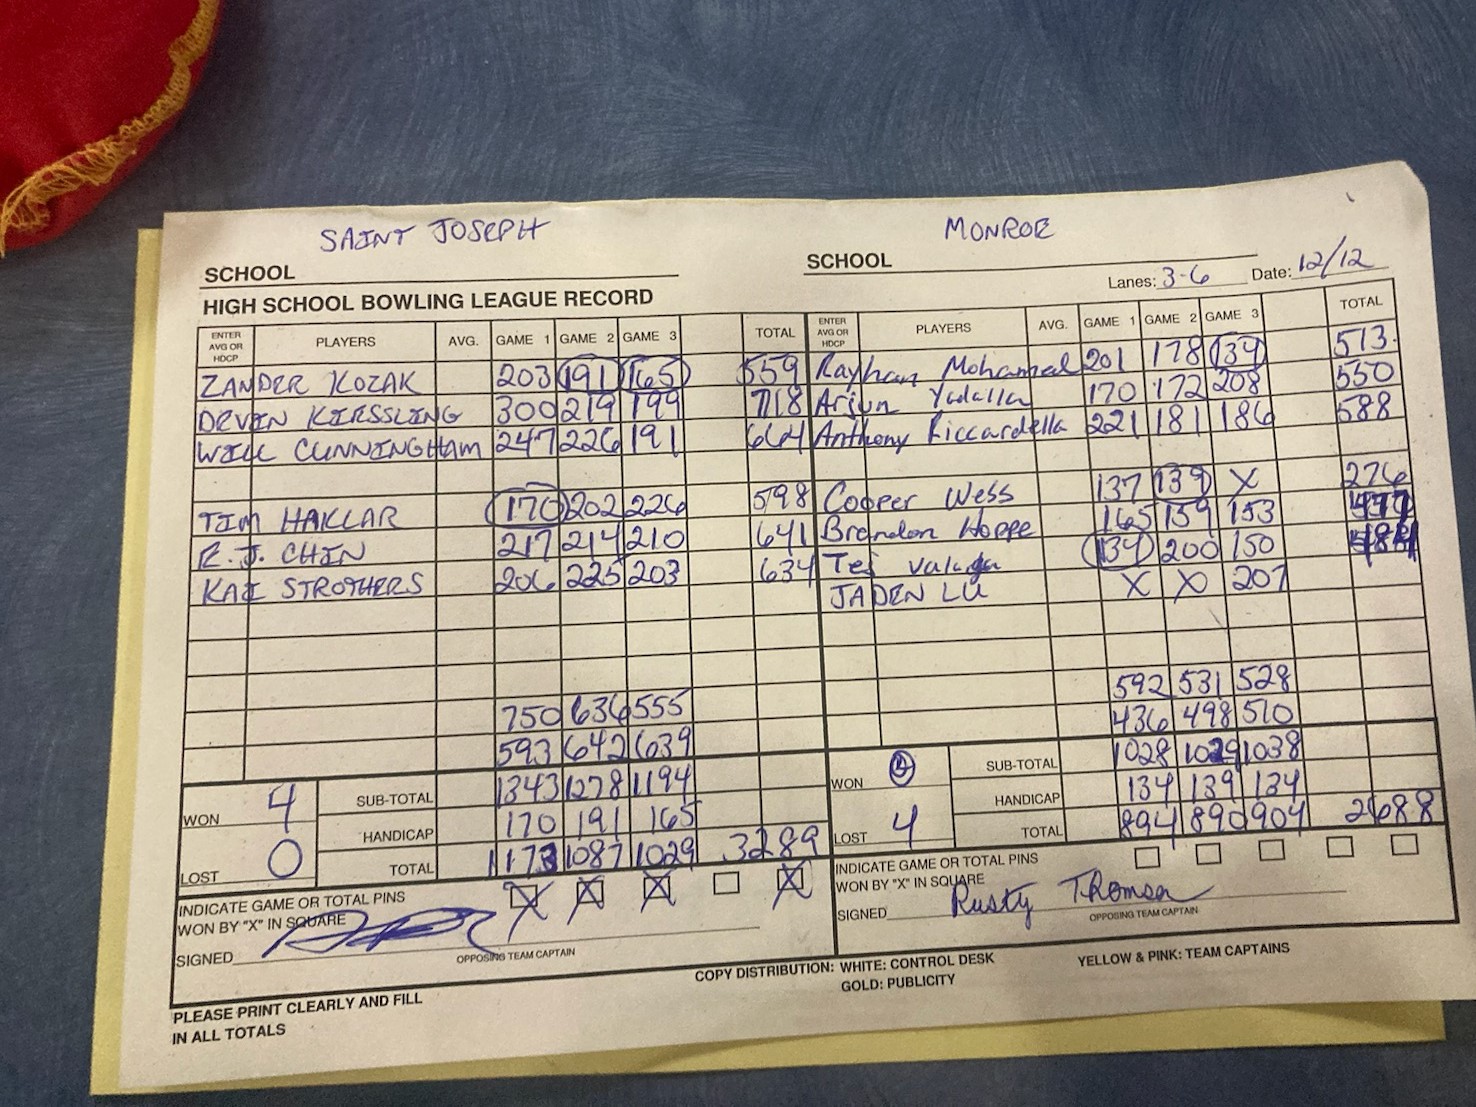 SAINT JOSEPH MONROE
SCHOOL SCHOOL
Lanes: 3-6 Date: 12/12
HIGH SCHOOL BOWLING LEAGUE RECORD
ENTER AVG OR HDCP PLAYERS AVG. GAME 1 GAME 2 GAME 3 TOTAL ENTER AVG OR HDCP PLAYERS AVG. GAME 1 GAME 2 GAME 3 TOTAL
ZANDER KOZAK 203 191 165 559 Rayhan Mohamed 201 178 134 513
DEVIN KIESSLING 300 219 199 718 Arjun Yadalla 170 172 208 550
WILL CUNNINGHAM 247 226 191 664 Anthony Riccardella 221 181 186 588
TIM HAKLAR 170 202 226 598 Cooper Wess 137 139 X 276
R.J. CHIN 217 214 210 641 Brandon Hoppe 165 159 153 477
KAI STROTHERS 206 225 203 634 Tej 134 200 150 484
JADEN LU X X 207
750 636 555 592 531 528
593 642 639 436 498 510
WON 4 SUB-TOTAL 1343 1278 1194 WON 0 SUB-TOTAL 1028 1029 1038
HANDICAP 170 191 165 HANDICAP 134 139 134
LOST 0 TOTAL 1173 1087 1029 3289 LOST 4 TOTAL 894 890 904 2688
INDICATE GAME OR TOTAL PINS INDICATE GAME OR TOTAL PINS
WON BY "X" IN SQUARE X X X X WON BY "X" IN SQUARE
SIGNED SIGNED Rusty Thomsen
OPPOSING TEAM CAPTAIN OPPOSING TEAM CAPTAIN
PLEASE PRINT CLEARLY AND FILL COPY DISTRIBUTION: WHITE: CONTROL DESK YELLOW & PINK: TEAM CAPTAINS
IN ALL TOTALS GOLD: PUBLICITY